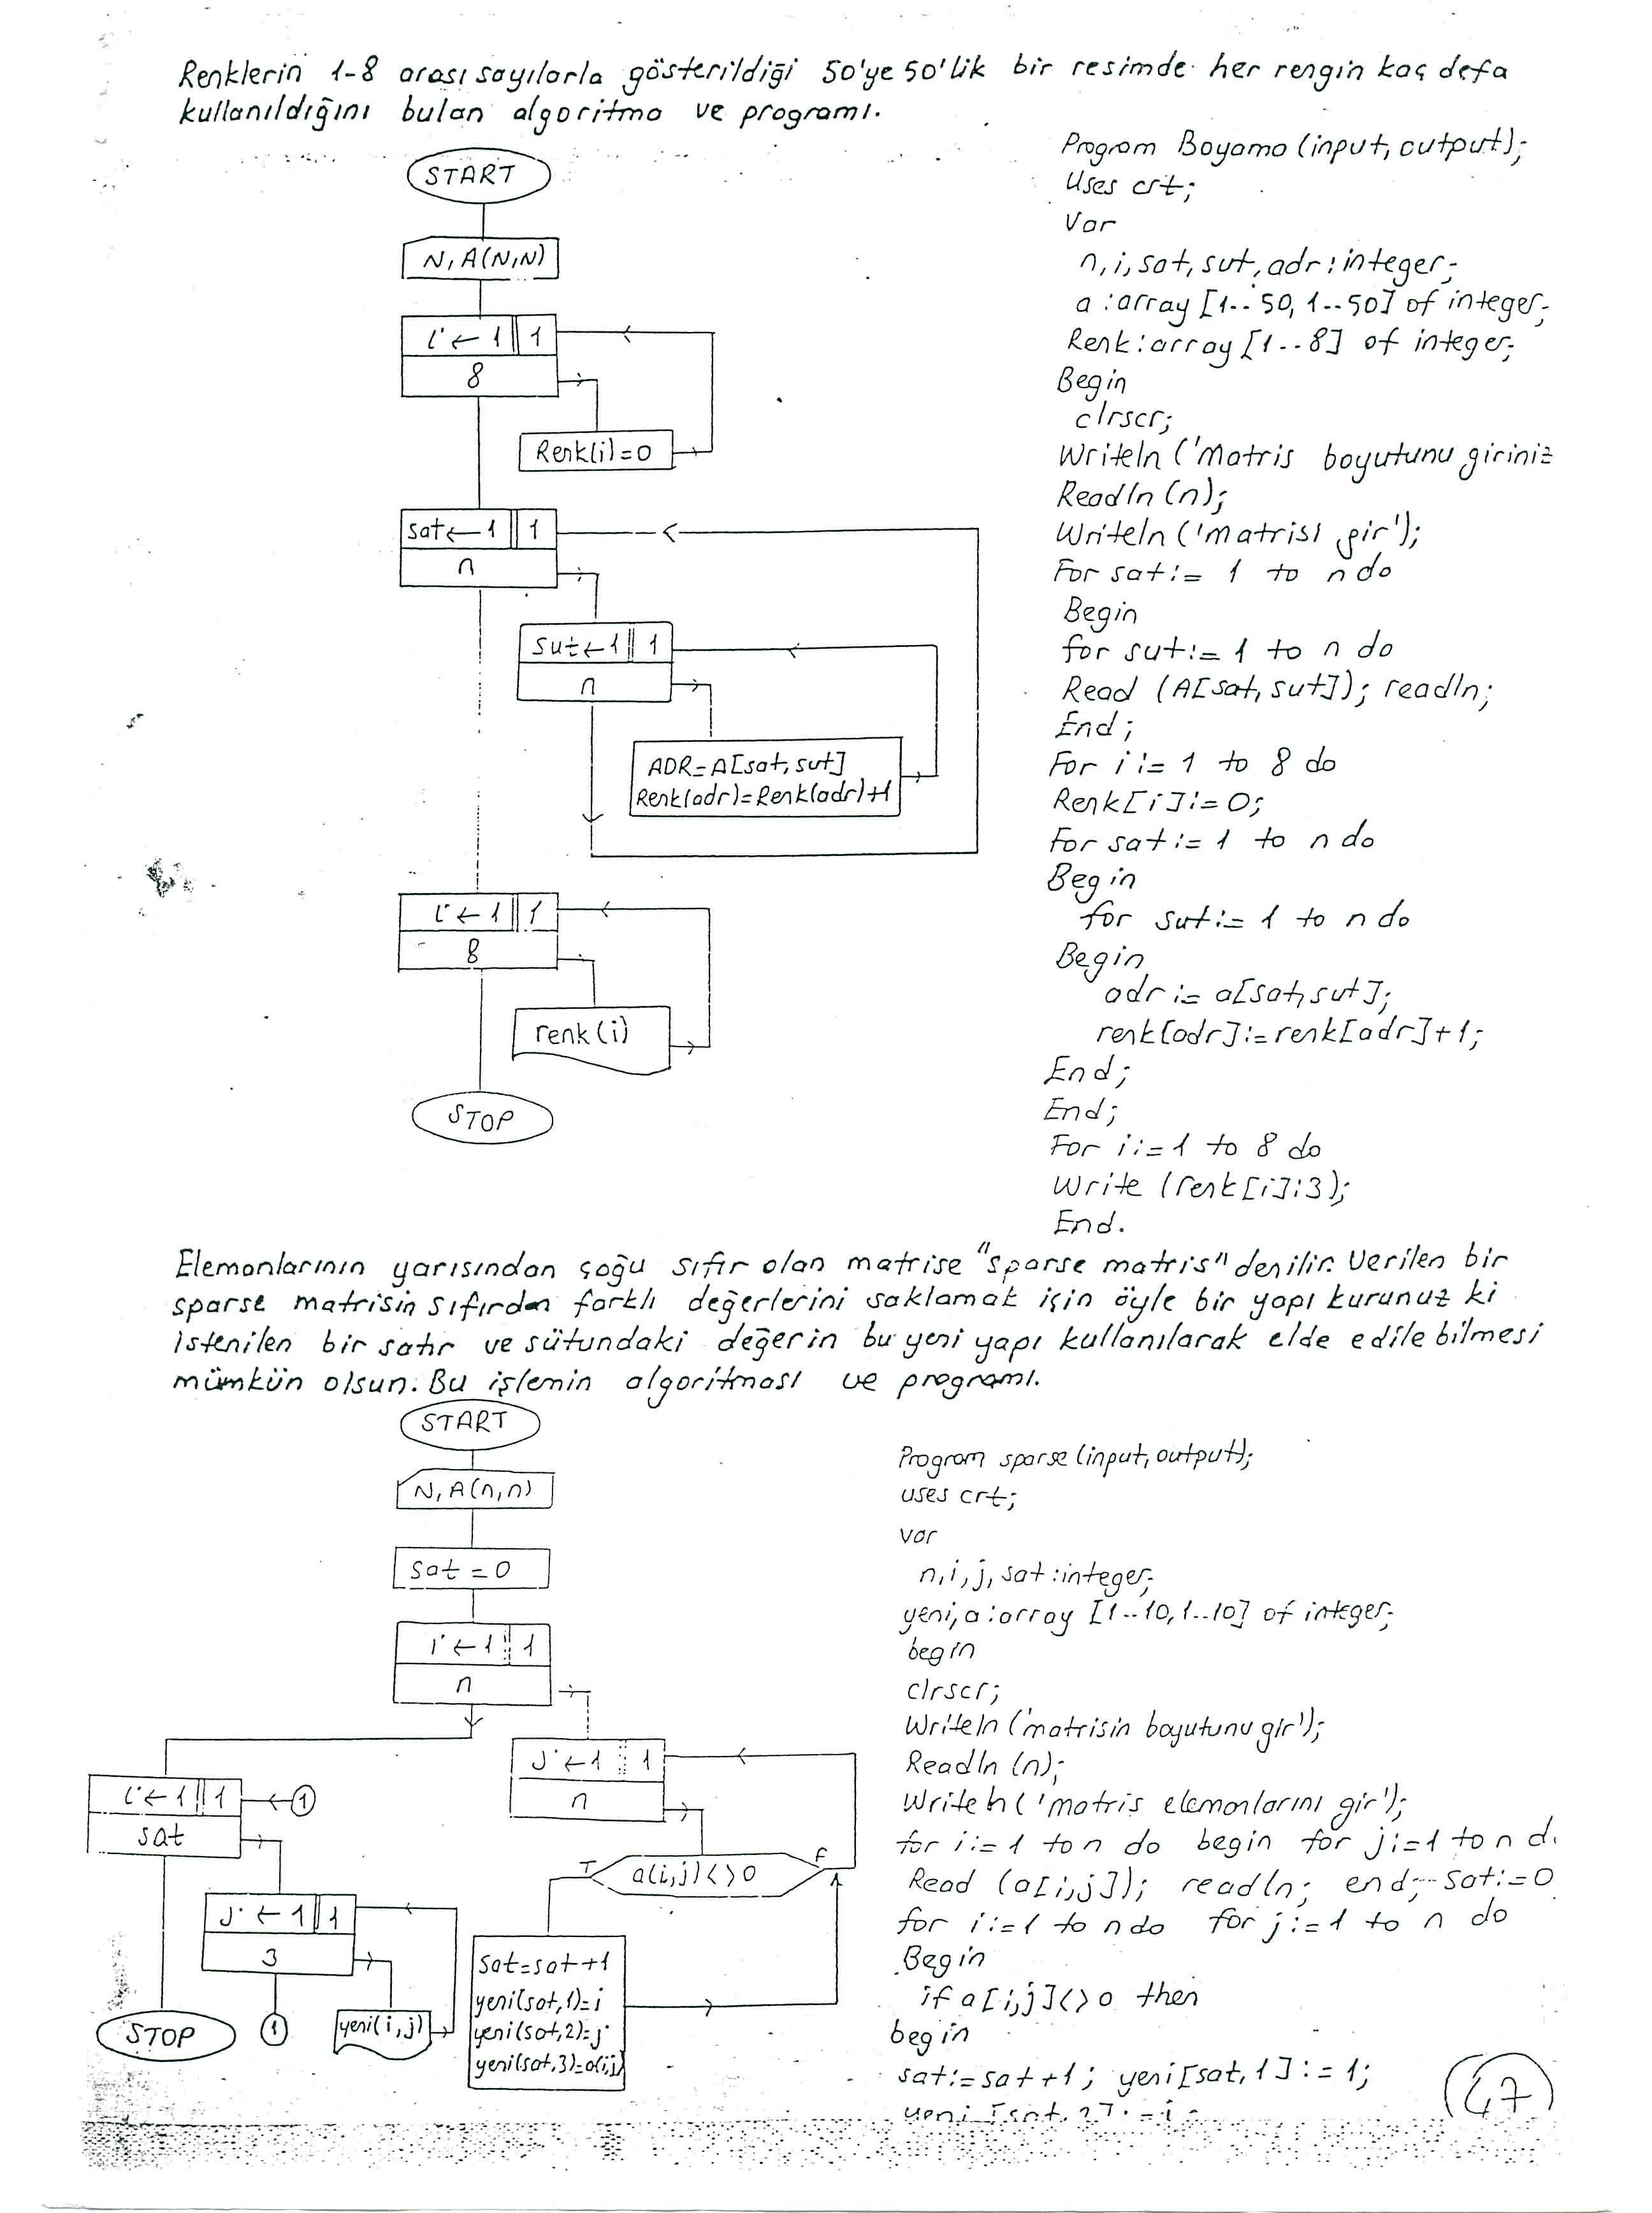 Renklerin 1-8 arası sayılarla gösterildiği 50'ye 50'lik bir resimde her rengin kaç defa
kullanıldığını bulan algoritma ve programı.
START
N, A(N,N)
i ← 1 1
8
Renk(i)=0
sat ← 1 1
n
sut ← 1 1
n
ADR=A[sat,sut]
Renk(adr)=Renk(adr)+1
i ← 1 1
8
renk(i)
STOP
Program Boyama (input, output);
Uses crt;
Var
n,i,sat,sut,adr:integer;
a:array [1..50, 1..50] of integer;
Renk:array [1..8] of integer;
Begin
clrscr;
Writeln ('Matris boyutunu giriniz
Readln (n);
Writeln ('matrisi gir');
For sat:= 1 to n do
Begin
for sut:= 1 to n do
Read (A[sat,sut]); readln;
End;
For i:= 1 to 8 do
Renk[i]:=0;
For sat:= 1 to n do
Begin
for sut:= 1 to n do
Begin
adr:= a[sat,sut];
renk[adr]:=renk[adr]+1;
End;
End;
For i:=1 to 8 do
Write (renk[i]:3);
End.
Elemanlarının yarısından çoğu sıfır olan matrise "sparse matris" denilir. Verilen bir
sparse matrisin sıfırdan farklı değerlerini saklamak için öyle bir yapı kurunuz ki
istenilen bir satır ve sütundaki değerin bu yeni yapı kullanılarak elde edile bilmesi
mümkün olsun. Bu işlemin algoritması ve programı.
START
N, A(n,n)
sat = 0
i ← 1 1
n
j ← 1 1
n
T a(i,j)<>0 F
sat=sat+1
yeni(sat,1)=i
yeni(sat,2)=j
yeni(sat,3)=a(i,j)
i ← 1 1 1
sat
j ← 1 1
3
yeni(i,j)
1
STOP
Program sparse (input, output);
uses crt;
var
n,i,j,sat:integer;
yeni,a:array [1..10,1..10] of integer;
begin
clrscr;
Writeln ('matrisin boyutunu gir');
Readln (n);
Writeln ('matris elemanlarını gir');
for i:= 1 to n do begin for j:=1 to n d
Read (a[i,j]); readln; end; sat:=0
for i:=1 to n do for j:=1 to n do
Begin
if a[i,j]<>0 then
begin
sat:=sat+1; yeni[sat,1]:=1;
yeni [sat,2]:=j;
47